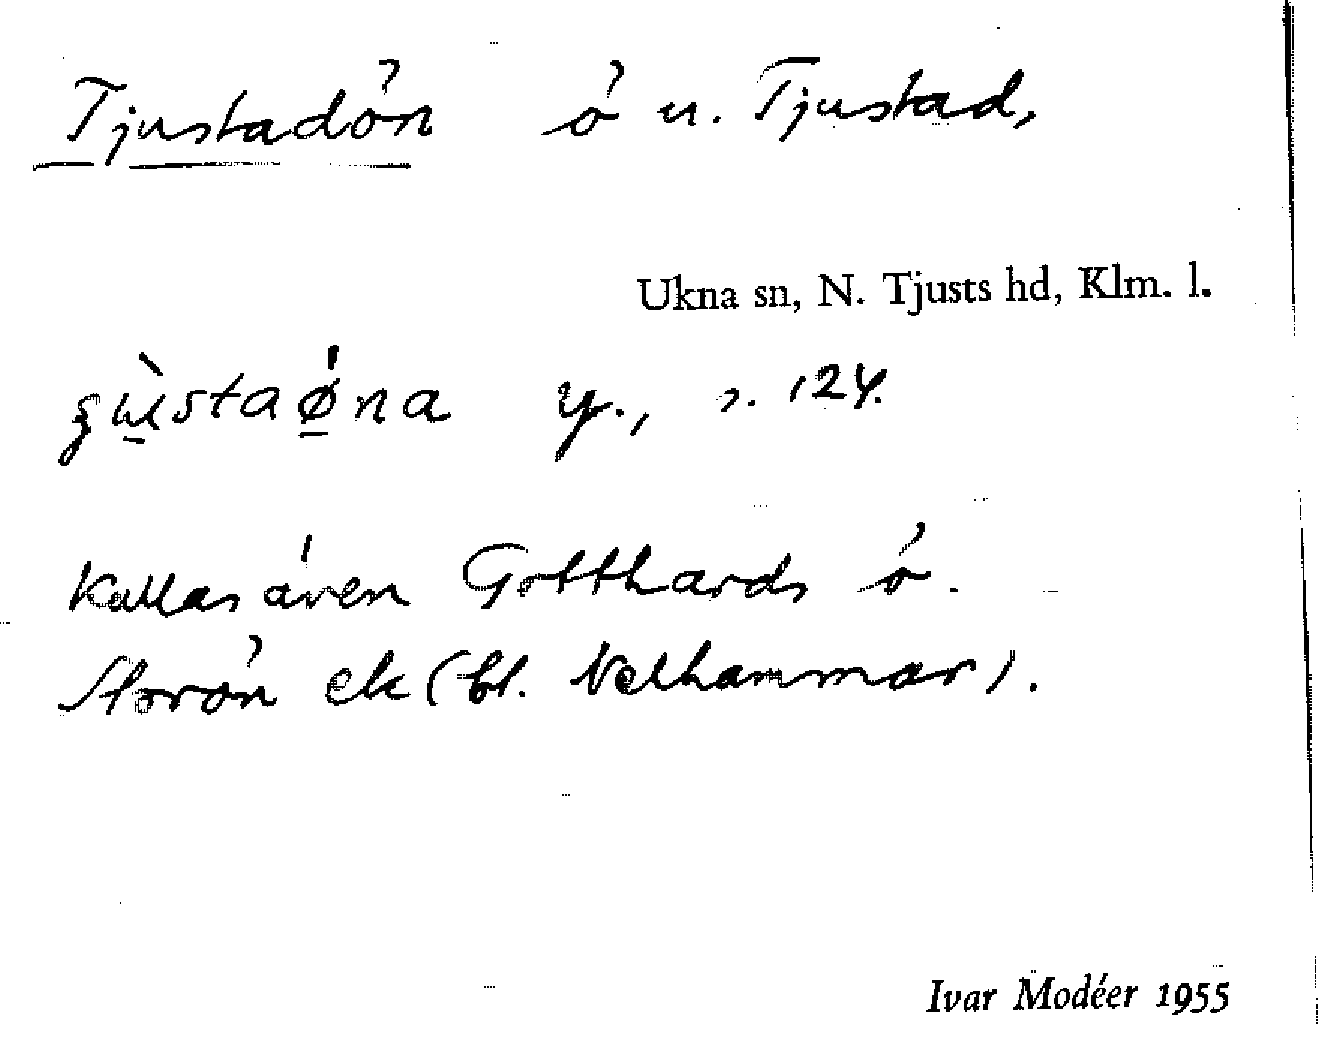 Tjustadön ö u. Tjustad,
Ukna sn, N. Tjusts hd, Klm. l.
y., s. 124.
Kallas även Gotthards ö.
Storön ek (bl. Nelhammar).
Ivar Modéer 1955